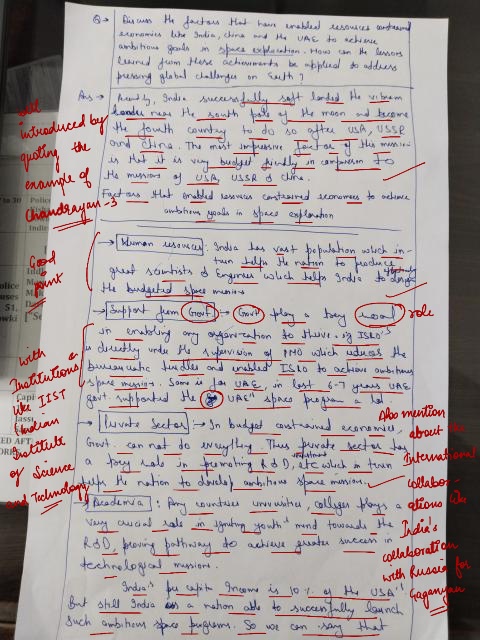 Q → Discuss the factors that have enabled resources constrained
economies like India, China and the UAE to achieve
ambitious goals in space exploration. How can the lessons
learned from these achievements be applied to address
pressing global challenges on Earth?
Ans → Recently, India successfully soft landed the vikram
lander near the south pole of the moon and become
the fourth country to do so after USA, USSR
and China. The most impressive factor of this mission
is that it is very budget friendly in comparison to
the missions of USA, USSR & China.
introduced by
quoting the
example of
Chandrayan-3
Factors that enabled resources constrained economies to achieve
ambitious goals in space exploration
→ Human resources: India has vast population which in-
turn helps the nation to produce
great scientists & Engineers which helps India to design
the budgeted space missions
Good
point
→ Support from Govt → Govt play a key role
in enabling any organization to thrive. eg ISRO's
is directly under the supervision of PMO which reduces the
bureaucratic hurdles and enabled ISRO to achieve ambitious
space mission. Same is for UAE, in last 6-7 years UAE
govt. supported the UAE's space program a lot.
with
Institutions
like IIST
(Indian
Institute
of Science
and Technology)
→ Private Sector → In budget constrained economies,
Govt. can not do everything. Thus private sector has
a key role in promoting R&D, investment etc which in turn
helps the nation to develop ambitious space mission.
Also mention
about the
International
collabor-
ations like
India's
collaboration
with Russia for
Gaganyan
→ Academia: Any countries universities, colleges plays a
very crucial role in igniting youth's mind towards the
R&D, proving pathway to achieve greater success in
technological missions.
India's per capita Income is 10% of the USA's
But still India as a nation able to successfully launch
such ambitious space programs. So we can say that